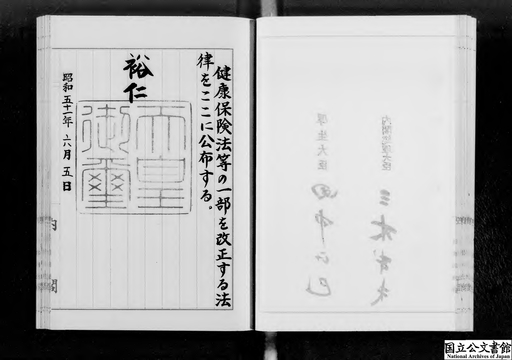 健康保険法等の一部を改正する法
律をここに公布する。
裕仁
天皇
御璽
昭和五十一年六月五日
内閣
内閣総理大臣
三木武夫
厚生大臣
田中正巳
国立公文書館
National Archives of Japan